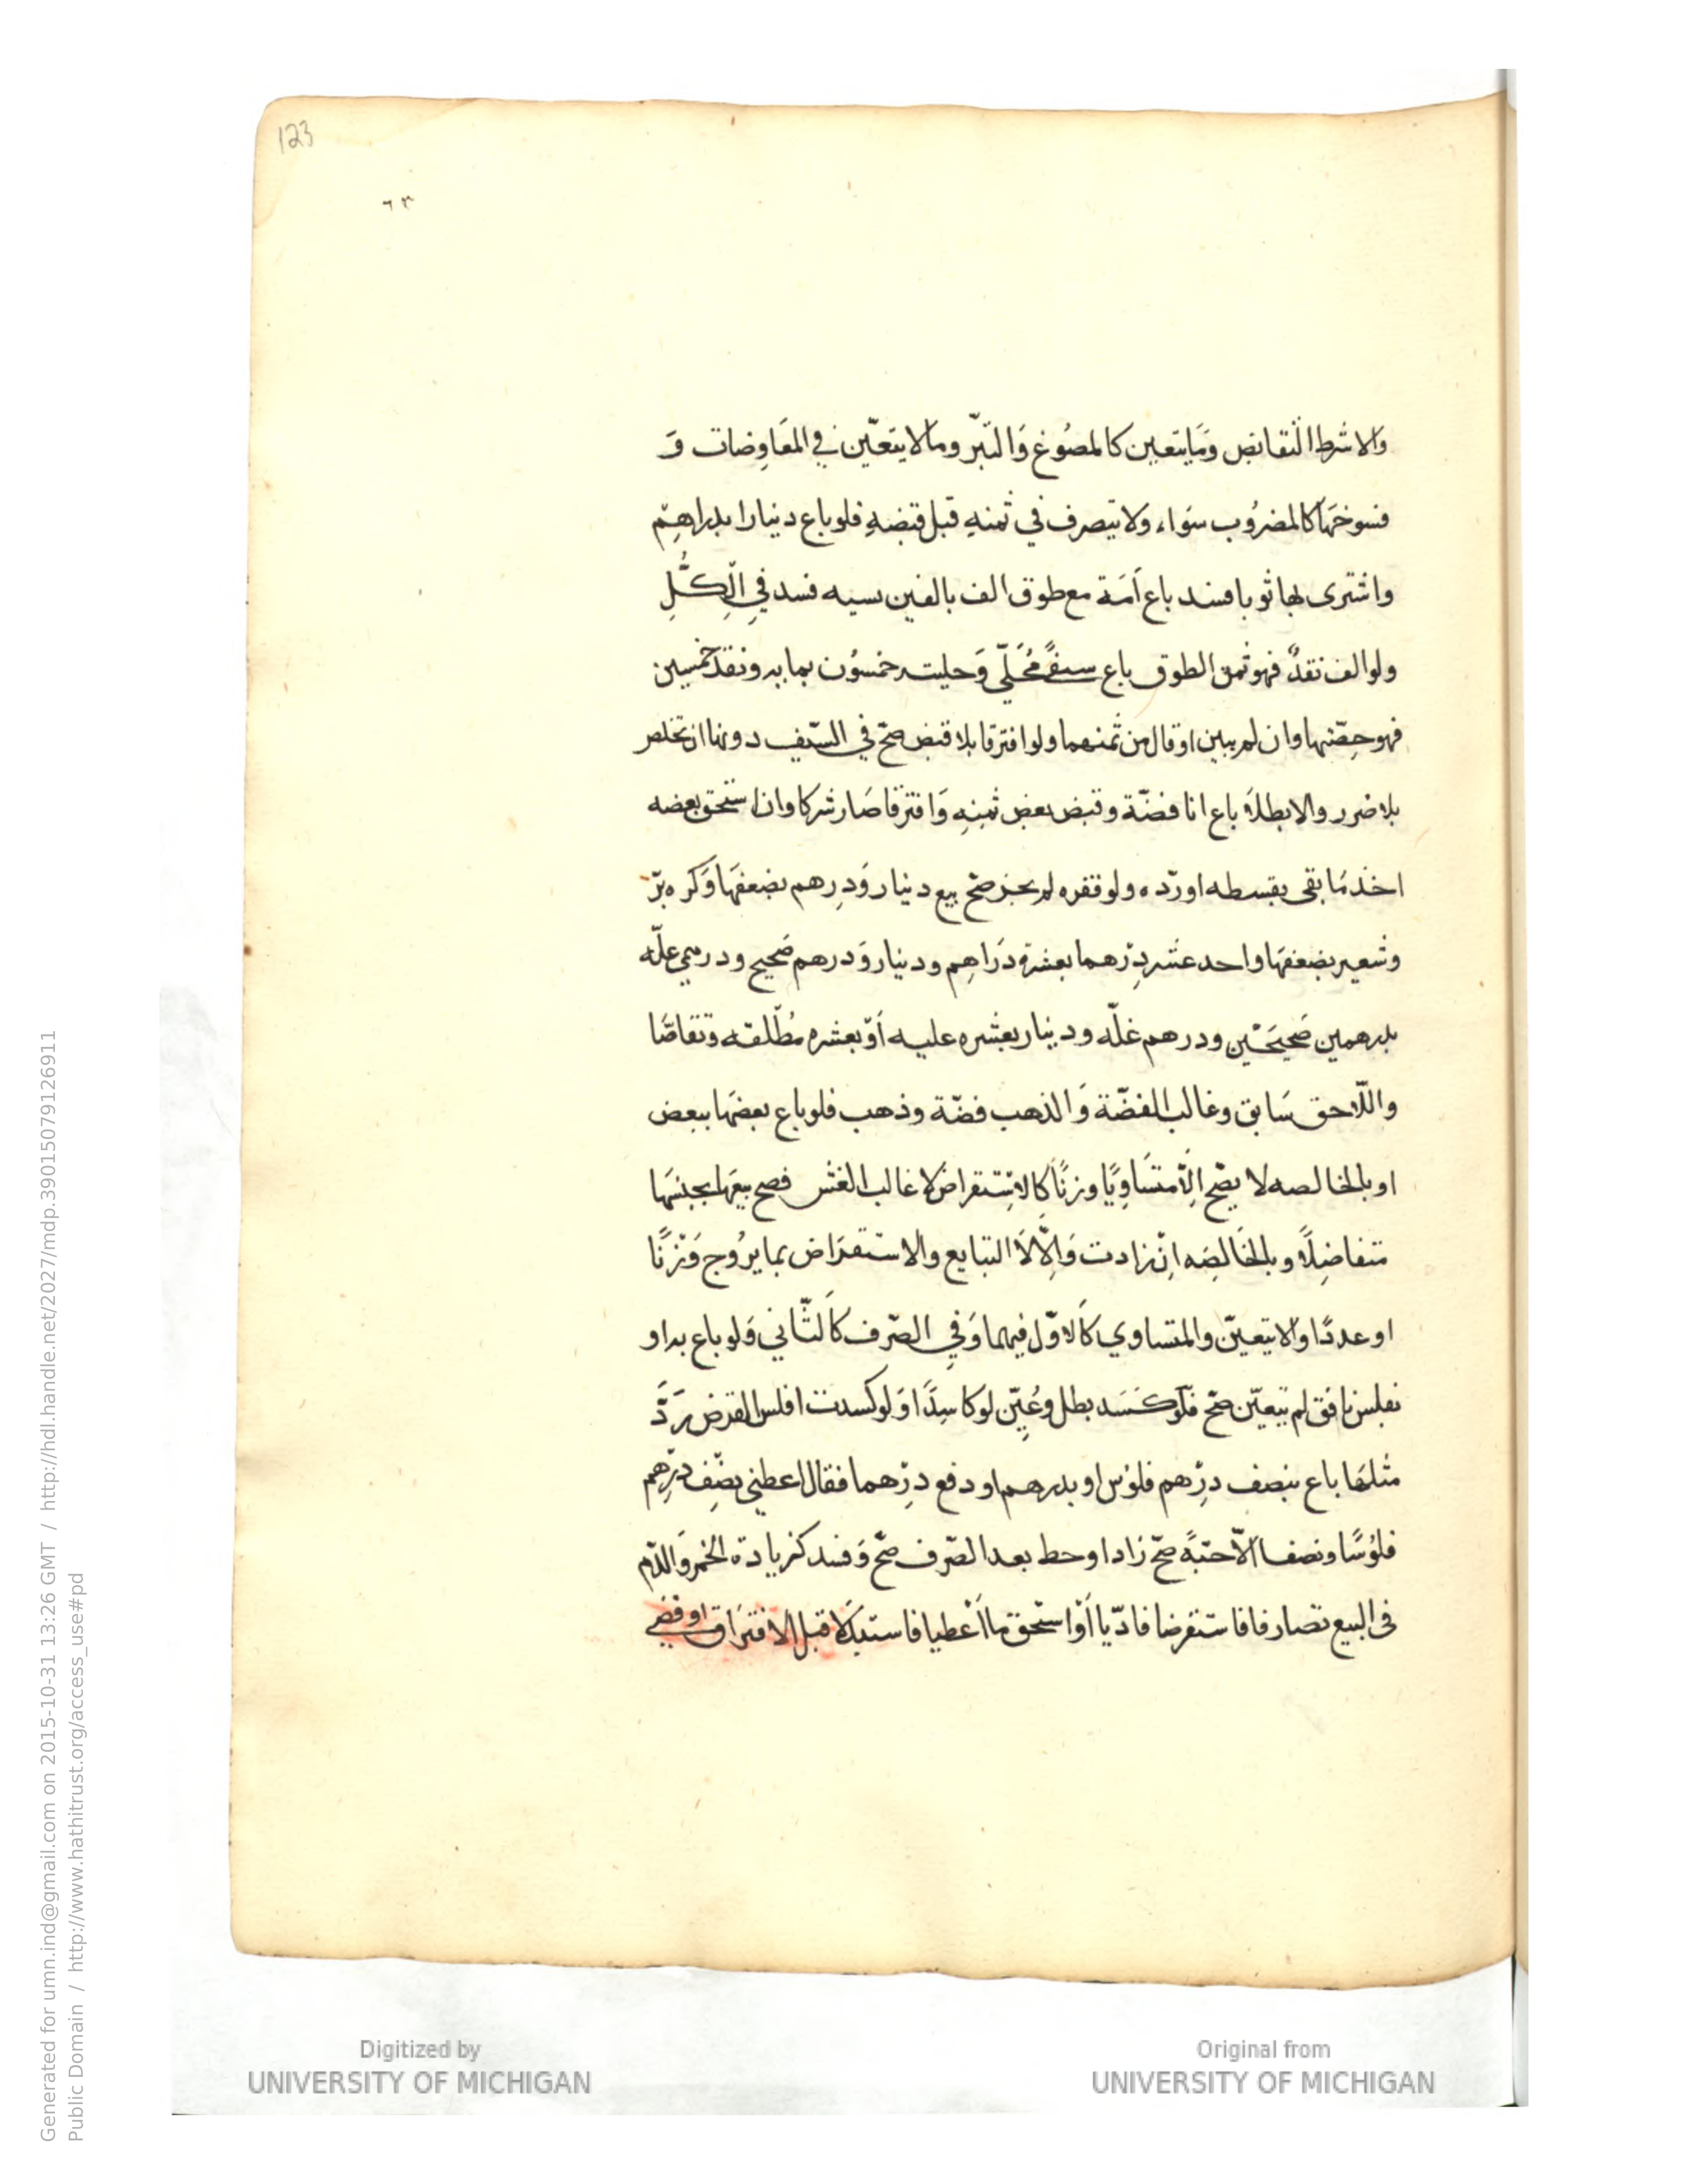 123
٦٣
والا شرط التقابض وَمَا يتعين كالمصُوغ وَالتّبّر ومالا يتعّين في المعَاوِضات وَ
فسوخهَا كالمضرُوب سَواء ولا يتصرف في ثمنهِ قبل قبضهِ فلو باع دنيارا بدراهِم
واشترى بها ثوبا فسد باع اَمَة مع طوق الف بالفين نسيه فسد في الِكُّلِ
ولو الف نقدٌ فهو ثمن الطوق باع سيفً مُحَلّي وَحليته خمسُون بمايه ونقد خمسين
فهو حِصّتها وان لم يبين او قال من ثمنهما ولو افترقا بلا قبض صحّ في السّيف دونها ان تخلص
بلا ضرر والا بطلاَ باع انا فضّة وقبض بعض ثمنِهِ وَافترقا صَار شركا وان استحق بعضه
اخذ مَا بقى بقسطه او ردّه ولو نقره لم يجز صحّ بيع دنيار وَدِرهم بضعفهَا وَكر ه برّ
وشعير بضعفهَا واحد عشر دِرْهما بعشرة دَراهِم ودنيار وَدرهم صَحيح ودرهمي علّه
بدرهمين صَحيحَيْن ودرهم غلّه ودينار بعشره عليه اَوْ بعشره مُطّلقه وتقاصّا
واللّاحق سَابق وغالب الفضّة وَالذهب فضّة وذهب فلو باع بعضهَا ببعض
او بالخالصه لا يصّح اِلّا متسَاوِيًا وزنًا كَالاِسْتقراض لا غالب الغش فصح بيعهَا بجنسهَا
متفاضِلًا وبالخَالصَه اِنْ زادت وَاِلّا لَا التبايع والاستقرَاض بما يرُوج وَزْنًا
او عددًا اولا يتعيّن والمتساوي كَالاوّل فيهما وَفي الصّرف كَالثّاني وَلو باع به او
بفلس نافق لم يتيعّن صّح فلَوْ كسَسَد بطل وعُيِّن لو كاسِدًا اوَلو كسدت افلس القرض رَدَّ
مثلهَا باع بنصف دِرْهم فلوُس او بدرهم او دفع دِرْهما فقال اعطني نصْف دِرْهم
فلوُسًا ونصفا اَلّا حبّةً صّح زاد او حط بعد الصّرف صّح وَفسد كزيادة الخمر وَالدّم
في البيع تصارفا فاستقرضا فادّيا اَوْ استحق ما اَعْطيا فاستبدَلا قبل الافترَاق او قضي
Generated for umn.ind@gmail.com on 2015-10-31 13:26 GMT / http://hdl.handle.net/2027/mdp.39015079126911
Public Domain / http://www.hathitrust.org/access_use#pd
Digitized by
UNIVERSITY OF MICHIGAN
Original from
UNIVERSITY OF MICHIGAN